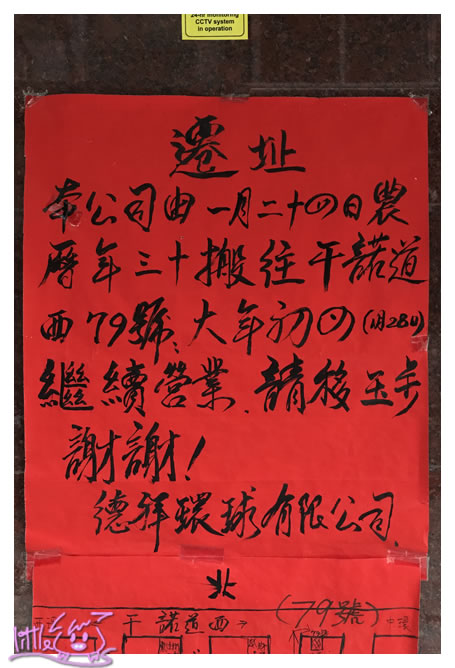 24-hr monitoring
CCTV system
in operation
遷址
本公司由一月二十四日農
曆年三十搬往干諾道
西79號,大年初四(1月28日)
繼續營業,請移玉步
謝謝!
德祥環球有限公司.
北
干諾道西→ (79號)